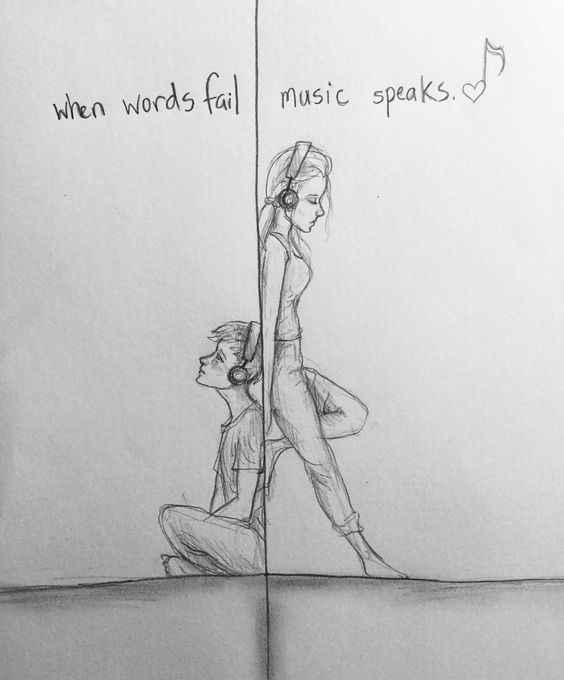 when words fail music speaks.